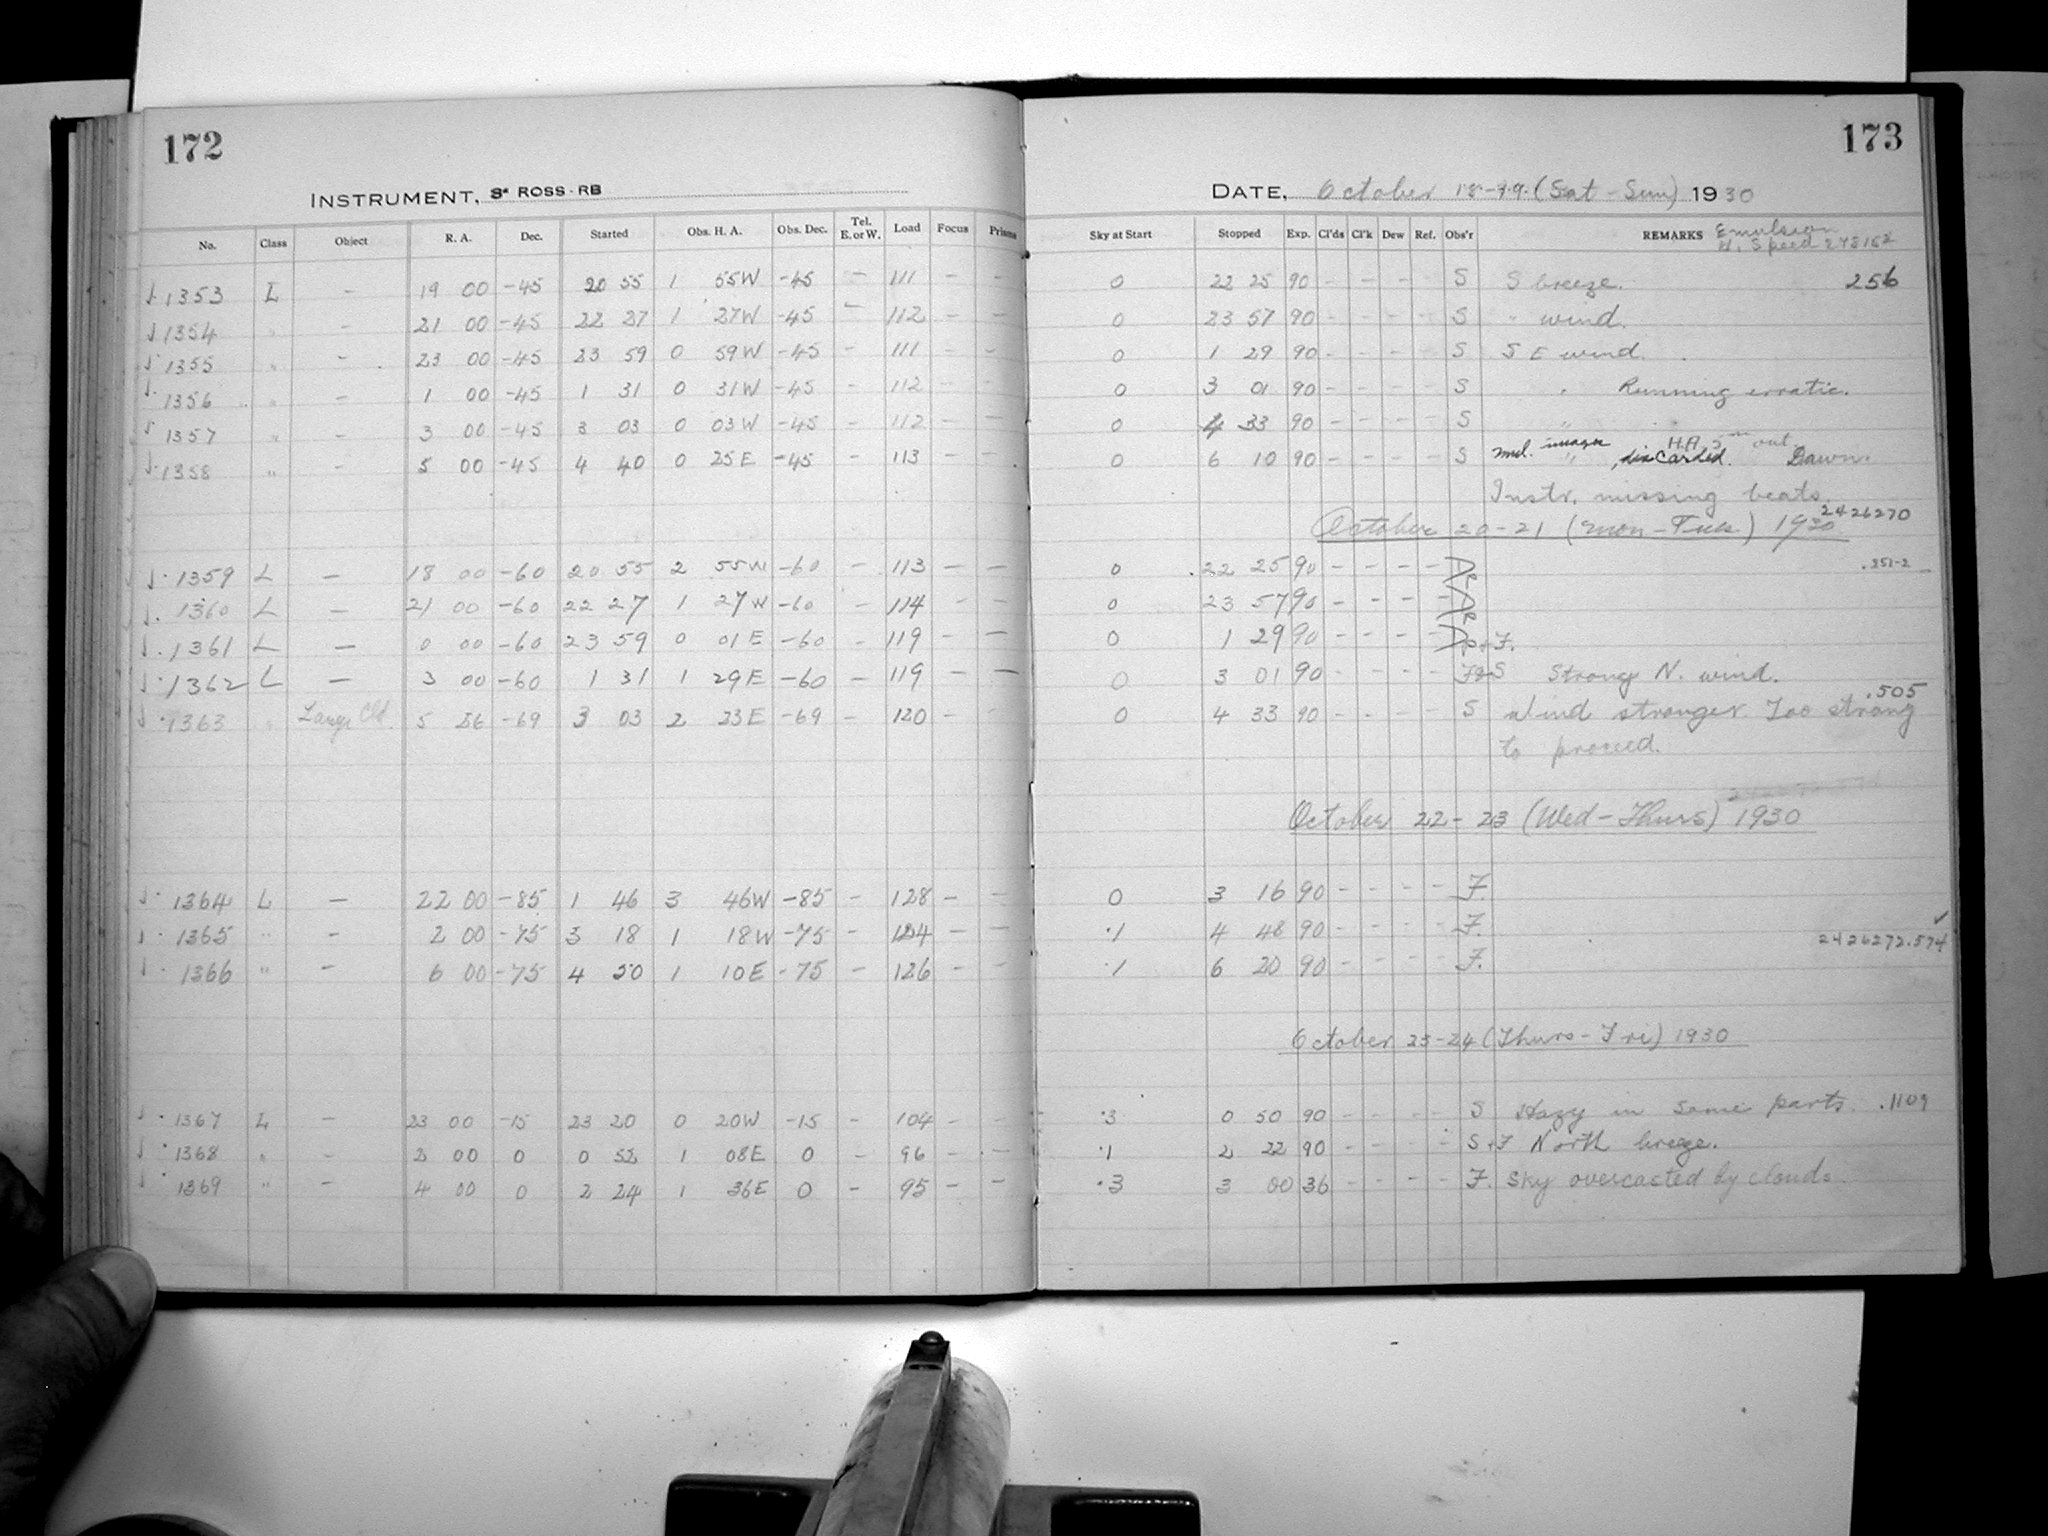 172
INSTRUMENT, 3" ROSS-RB
No. Class Object R. A. Dec. Started Obs. H. A. Obs. Dec. Tel. E. or W. Load Focus Prisms
1353 L - 19 00 -45 20 55 1 55W -45 - 111 - -
1354 " - 21 00 -45 22 27 1 27W -45 - 112 - -
1355 " - 23 00 -45 23 59 0 59W -45 - 111 - -
1356 " - 1 00 -45 1 31 0 31W -45 - 112 - -
1357 " - 3 00 -45 3 03 0 03W -45 - 112 - -
1358 " - 5 00 -45 4 40 0 25E -45 - 113 - -
1359 L - 18 00 -60 20 55 2 55W -60 - 113 - -
1360 L - 21 00 -60 22 27 1 27W -60 - 114 - -
1361 L - 0 00 -60 23 59 0 01E -60 - 119 - -
1362 L - 3 00 -60 1 31 1 29E -60 - 119 - -
1363 " Large Cld. 5 26 -69 3 03 2 23E -69 - 120 - -
1364 L - 22 00 -85 1 46 3 46W -85 - 128 - -
1365 " - 2 00 -75 3 18 1 18W -75 - 124 - -
1366 " - 6 00 -75 4 50 1 10E -75 - 126 - -
1367 L - 23 00 -15 23 20 0 20W -15 - 104 - -
1368 " - 2 00 0 0 52 1 08E 0 - 96 - -
1369 " - 4 00 0 2 24 1 36E 0 - 95 - -
173
DATE, October 18-19 (Sat-Sun) 1930
Sky at Start Stopped Exp. Cl'ds Cl'k Dew Ref. Obs'r REMARKS Emulsion
H. Speed 278162
0 22 25 90 - - - - S S breeze. 256
0 23 57 90 - - - - S " wind.
0 1 29 90 - - - - S S E wind.
0 3 01 90 - - - - S " Running erratic.
0 4 33 90 - - - - S "
H.A. 5m out.
0 6 10 90 - - - - S mul. images " , discarded. Dawn.
Instr. missing beats.
2426270
October 20-21 (Mon-Tues.) 1930
0 22 25 90 - - - - .251-2
0 23 57 90 - - - -
0 1 29 90 - - - - + F.
0 3 01 90 - - - - F+S Strong N. wind.
.505
0 4 33 90 - - - - S Wind stronger Too strong
to proceed.
October 22-23 (Wed-Thurs) 1930
0 3 16 90 - - - - F.
.1 4 48 90 - - - - F.
2426272.574
.1 6 20 90 - - - - F.
October 23-24 (Thurs-Fri) 1930
.3 0 50 90 - - - - S Hazy in some parts. .1109
.1 2 22 90 - - - - S+F North breeze.
.3 3 00 36 - - - - F. Sky overcasted by clouds.